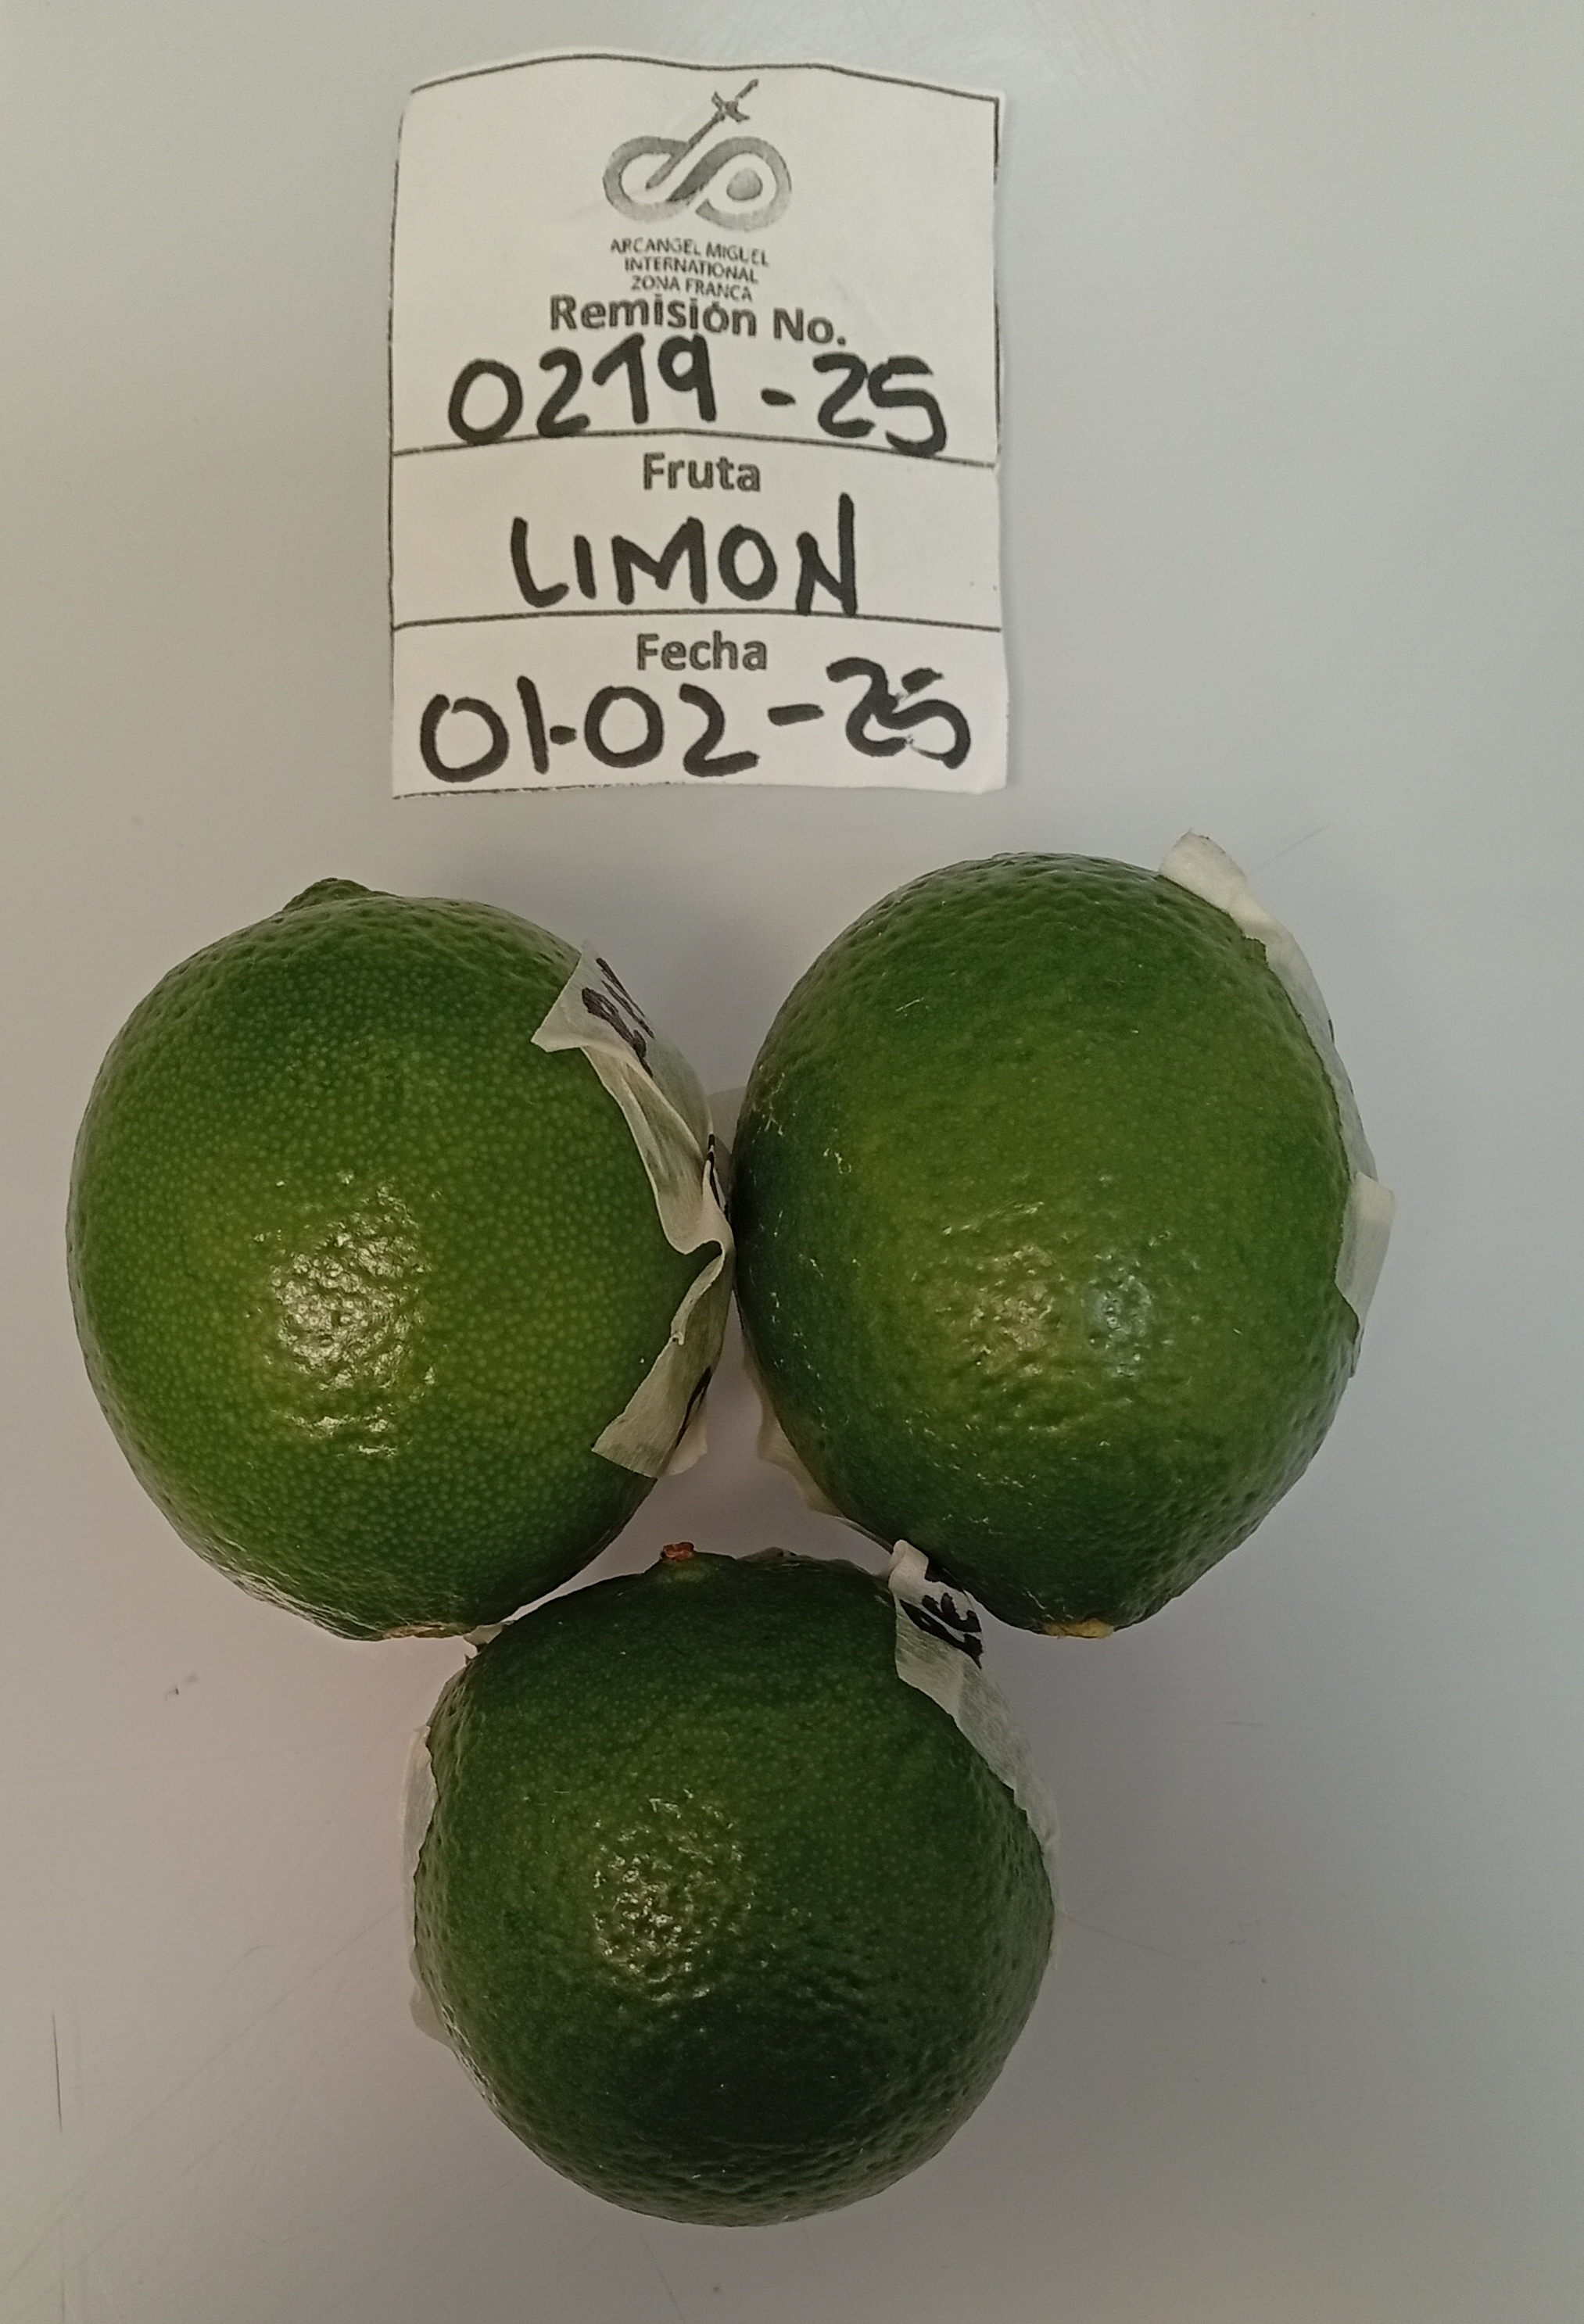 ARCANGEL MIGUEL
INTERNATIONAL
ZONA FRANCA
Remisión No.
0219-25
Fruta
LIMON
Fecha
01-02-25